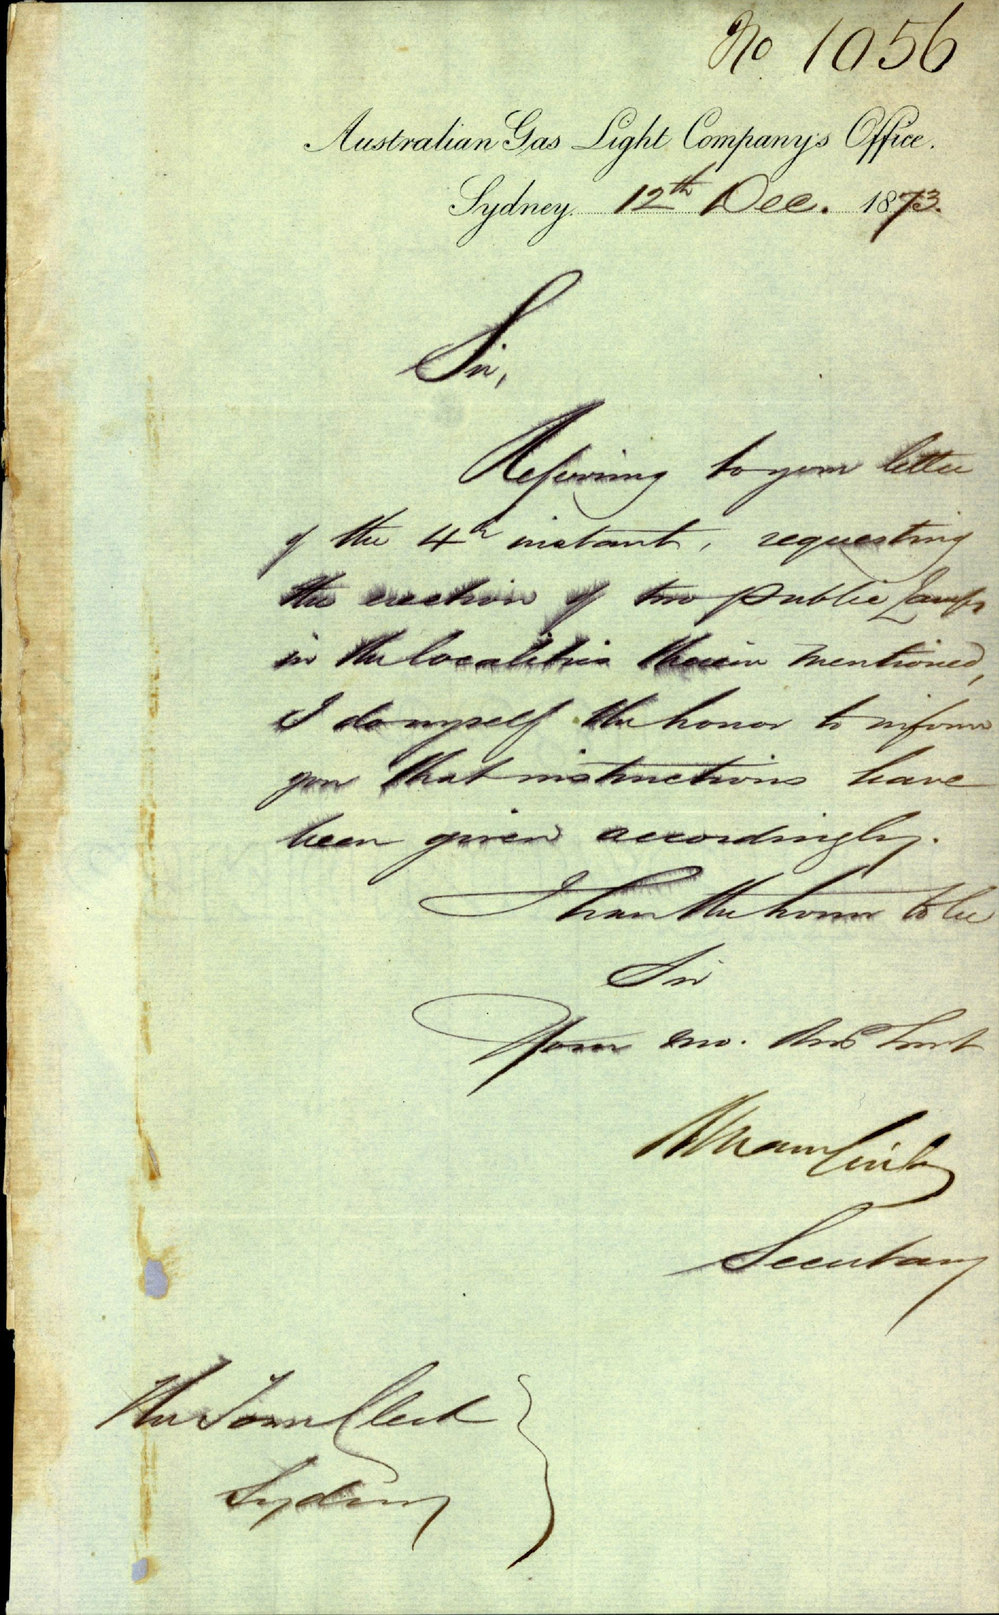 No 1056
Australian Gas Light Company's Office.
Sydney. 12th Dec. 1873.
Sir,
Referring to your letter
of the 4th instant, requesting
the erection of two public Lamps
in the localities therein mentioned,
I do myself the honor to inform
you that instructions have
been given accordingly.
I have the honor to be
Sir
Your mo. Obed Servt
Secretary
The Town Clerk
Sydney